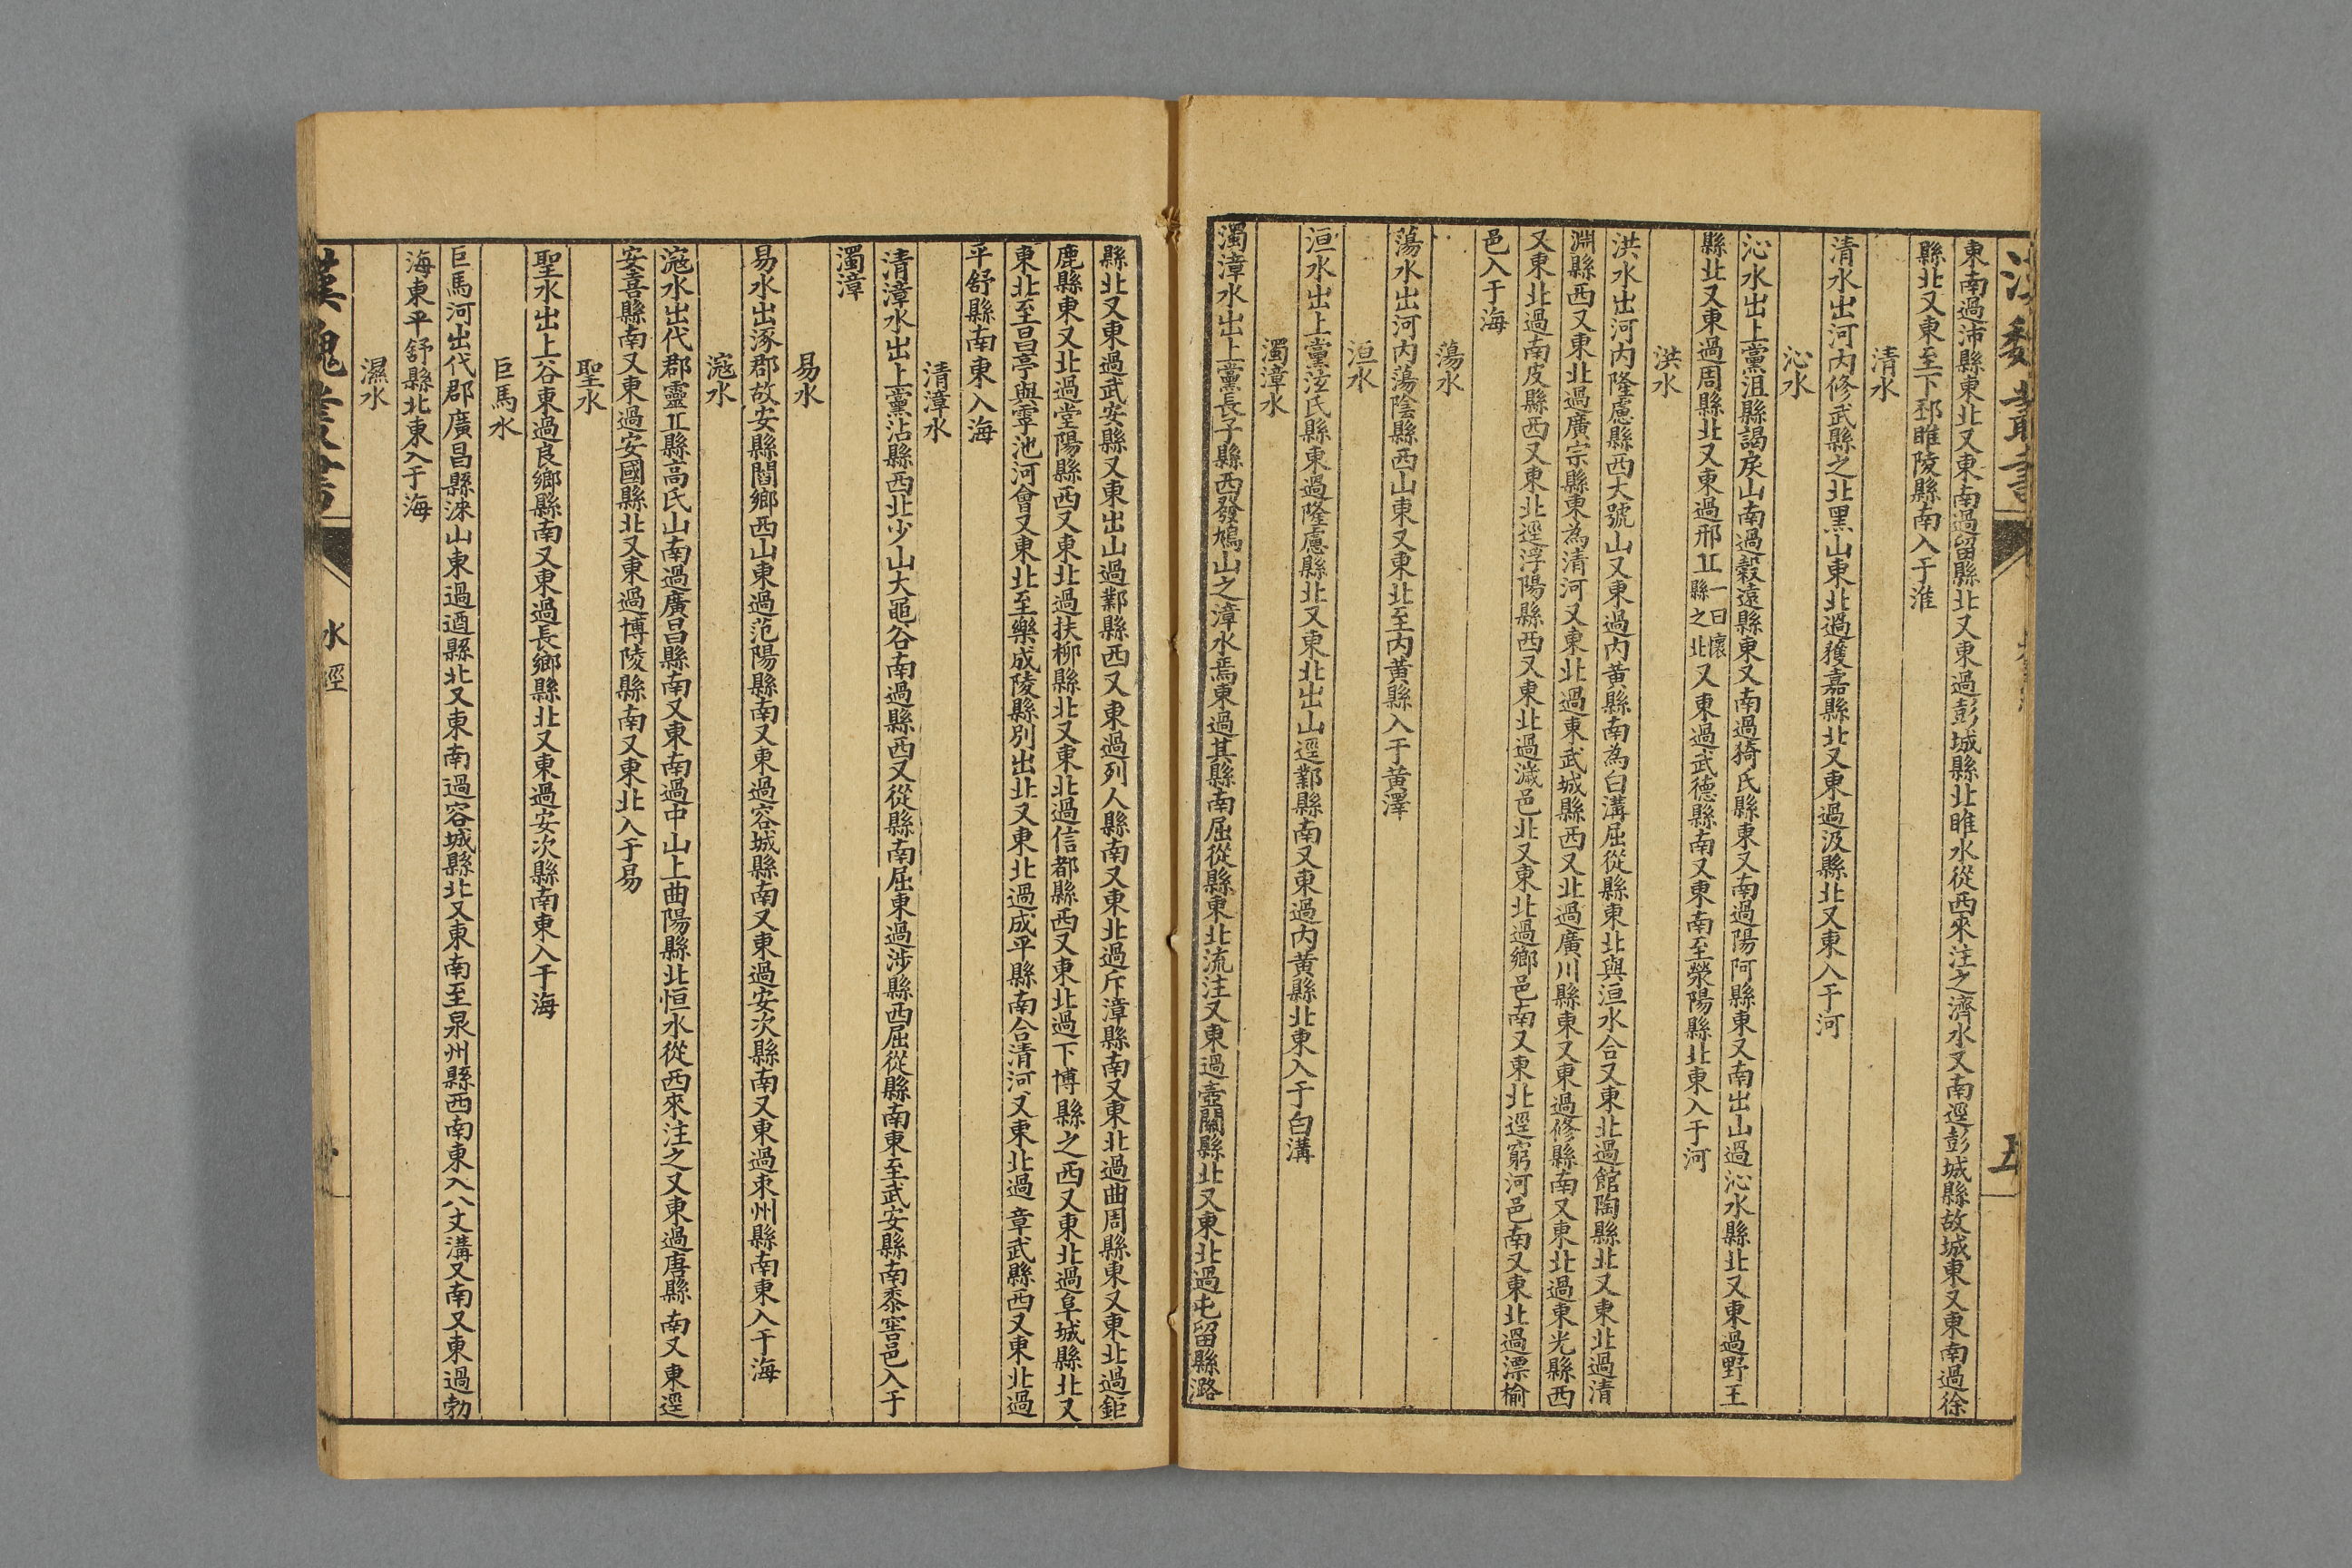 東南過沛縣東北又東南過留縣北又東過彭城縣北睢水從西來注之濟水又南逕彭城縣故城東又東南過徐
縣北又東至下邳睢陵縣南入于淮
清水
清水出河內修武縣之北黑山東北過獲嘉縣北又東過汲縣北又東入于河
沁水
沁水出上黨沮縣謁戾山南過穀遠縣東又南過猗氏縣東又南過陽阿縣東又南出山過沁水縣北又東過野王
縣北又東過周縣北又東過邢丘一曰懷縣之北又東過武德縣南又東南至滎陽縣北東入于河
洪水
洪水出河內隆慮縣西大號山又東過內黃縣南為白溝屈從縣東北與洹水合又東北過館陶縣北又東北過清
淵縣西又東北過廣宗縣東為清河又東北過東武城縣西又北過廣川縣東又東過修縣南又東北過東光縣西
又東北過南皮縣西又東北逕浮陽縣西又東北過濊邑北又東北過鄉邑南又東北逕窮河邑南又東北過漂榆
邑入于海
蕩水
蕩水出河內蕩陰縣西山東又東北至內黃縣入于黃澤
洹水
洹水出上黨泫氏縣東過隆慮縣北又東北出山逕鄴縣南又東過內黃縣北東入于白溝
濁漳水
濁漳水出上黨長子縣西發鳩山之漳水焉東過其縣南屈從縣東北流注又東過壺關縣北又東北過屯留縣潞
縣北又東過武安縣又東出山過鄴縣西又東過列人縣南又東北過斥漳縣南又東北過曲周縣東又東北過鉅
鹿縣東又北過堂陽縣西又東北過扶柳縣北又東北過信都縣西又東北過下博縣之西又東北過阜城縣北又
東北至昌亭與虖池河會又東北至樂成陵縣別出北又東北過成平縣南合清河又東北過章武縣西又東北過
平舒縣南東入海
清漳水
清漳水出上黨沾縣西北少山大黽谷南過縣西又從縣南屈東過涉縣西屈從縣南東至武安縣南黍窖邑入于
濁漳
易水
易水出涿郡故安縣閻鄉西山東過范陽縣南又東過容城縣南又東過安次縣南又東過束州縣南東入于海
滱水
滱水出代郡靈丘縣高氏山南過廣昌縣南又東南過中山上曲陽縣北恒水從西來注之又東過唐縣南又東逕
安喜縣南又東過安國縣北又東過博陵縣南又東北入于易
聖水
聖水出上谷東過良鄉縣南又東過長鄉縣北又東過安次縣南東入于海
巨馬水
巨馬河出代郡廣昌縣淶山東過遒縣北又東南過容城縣北又東南至泉州縣西南東入八丈溝又南又東過勃
海東平舒縣北東入于海
濕水
漢魏叢書
水經